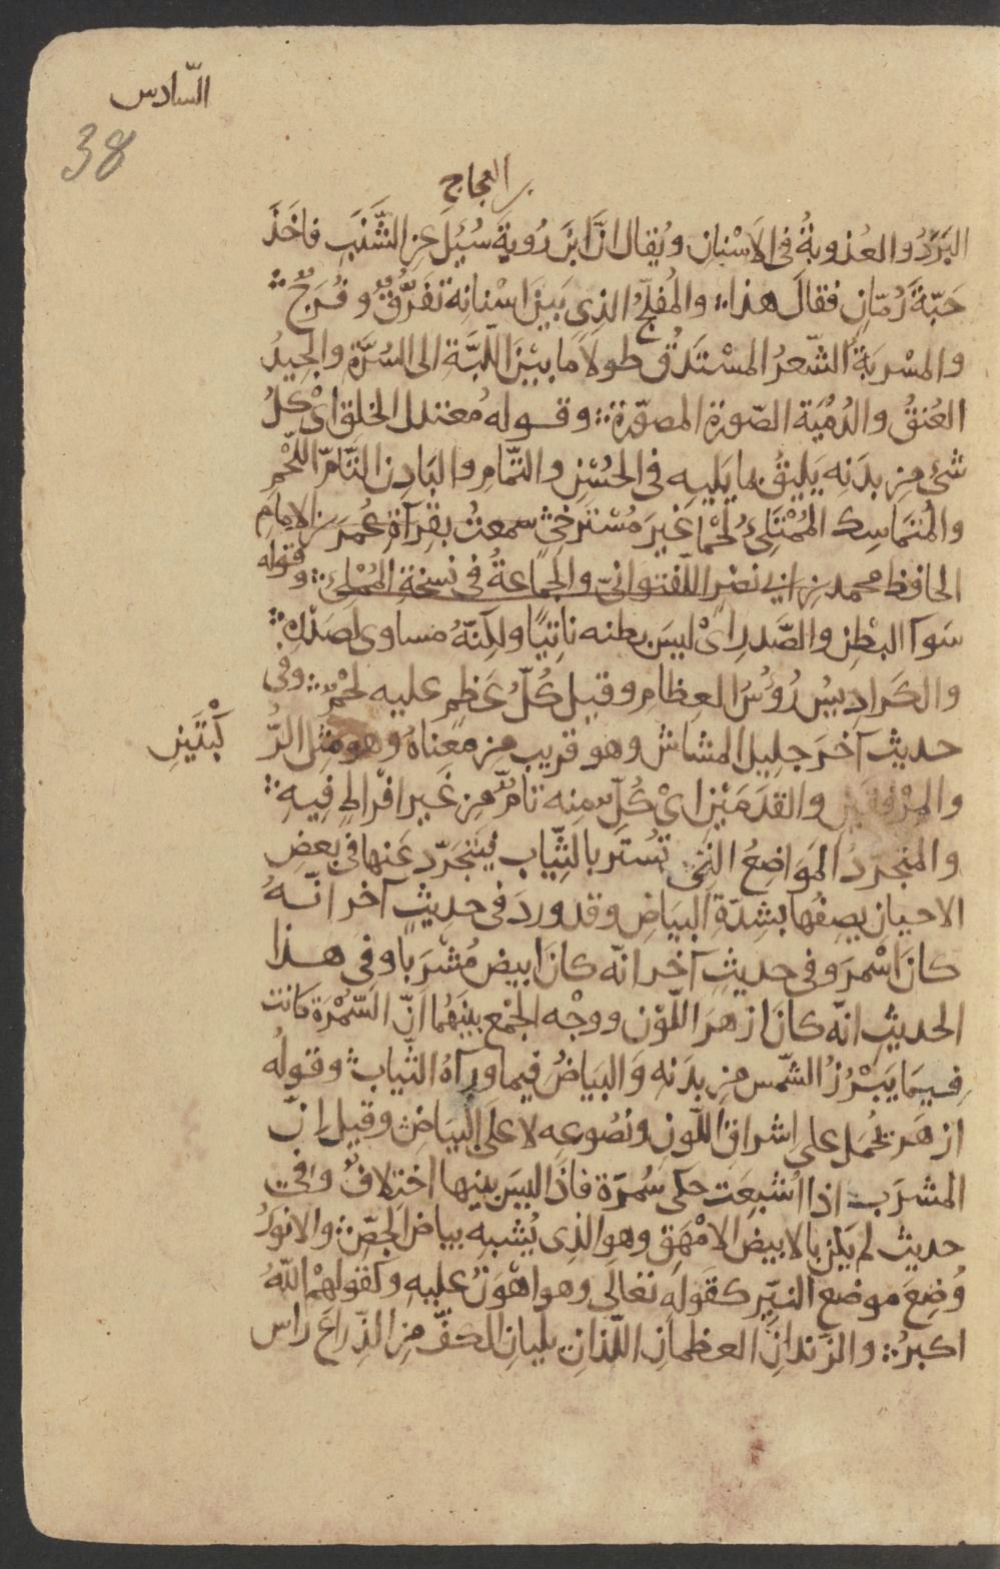 السّادس
38
بن العجاج
البَرَدُ والعُذوبةُ فى الاَسْنان ويُقال انّ ابنَ رُوبةَ سُئِلَ عنِ الشَّنَبِ فاخَذَ
حَبّةَ رُمّانٍ فقالَ هذا؛ والمُفلَّجُ الذِى بَينَ اسْنانِه تَفَرُّقٌ وفُرَجٌ
والمسْرُبَةُ الشّعرُ المسْتَدقُّ طولاً ما بيْنَ اللّبَّةِ الى السُرَّةِ والجِيدُ
العُنقُ والدُمْيَة الصّورة المصوّرة؛ وقوله مُعتدل الخلق اىْ كلُ
شئٍ مِن بدَنِه يَليقُ بما يَليهِ فى الحُسْنِ والتّمامِ والبَادِن التَّامّ اللّحْمِ
والمُتمَاسِك المُمْتَلِئُ لحْمًا غيرَ مُسْتَرخِىْ سمعتُ بقرآةِ عُمَرَ بن الامامِ
الحافظ محمد بن ابى نصْرٍ اللّفتوانىّ والجماعةُ فى نسخةِ المُمْلِى؛ وقوله
سَوآ البطْنِ والصَّدرِ اىْ ليسَ بطنه ناتِيًا ولكِنّهُ مساوى لصَدْرِهِ
والكَرادِيسُ رُوُسُ العِظامِ وقيل كُلُّ عَظمٍ عليه لحْمٌ؛ وفى
حديثٍ آخرَ جليل المشاش وهو قريب مِن معناهُ وهو مثل الرُّ
كْبتَينِ
والمِرْفقَينِ والقدَمَيْنِ اىْ كُلٌّ منه تامّ مِن غَيرِ افْراطٍ فِيهِ
والمتجرّدُ المَوَاضِعُ التِى تُستَر بالثِّيَابِ فيَتجَرّد عَنها فى بعضِ
الاحيانِ يصِفُها بشِدّةِ البيَاضِ وقد وردَ فى حديثٍ آخر انّهُ
كانَ اسْمرَ وفى حديثٍ آخر انّه كانَ ابيض مُشْرَبا وفى هذا
الحديثِ انّه كانَ ازهَرَ اللّوْن ووجْه الجَمْع بيْنَهُما انّ السّمْرَة كانتْ
فيمَا يَبْرُزُ للشّمس من بدَنه وَالبَيَاضُ فيما ورآهُ الثّيابُ وقولُه
ازهَر يُحْمَل على اشراقِ اللّونِ ونُصُوعِه لا علَى البَيَاضِ وقيل اِنّ
المشرَب اذا اُشبِعَت حكَى سُمرَة فاذًا ليسَ بينها اختلافٌ وفى
حديث لم يَكن بالابيضِ الامْهَقِ وهو الذِى يُشبِه بياض الجَصّ؛ والانوَرُ
وُضِعَ موضع النيّر كقَولِه تعَالَى وهو اهْوَنُ عليهِ وكقولهمْ اللهُ
اكبرُ؛ والزّندانِ العظمانِ اللّذانِ يليانِ الكفّ مِن الذِّراعِ راس